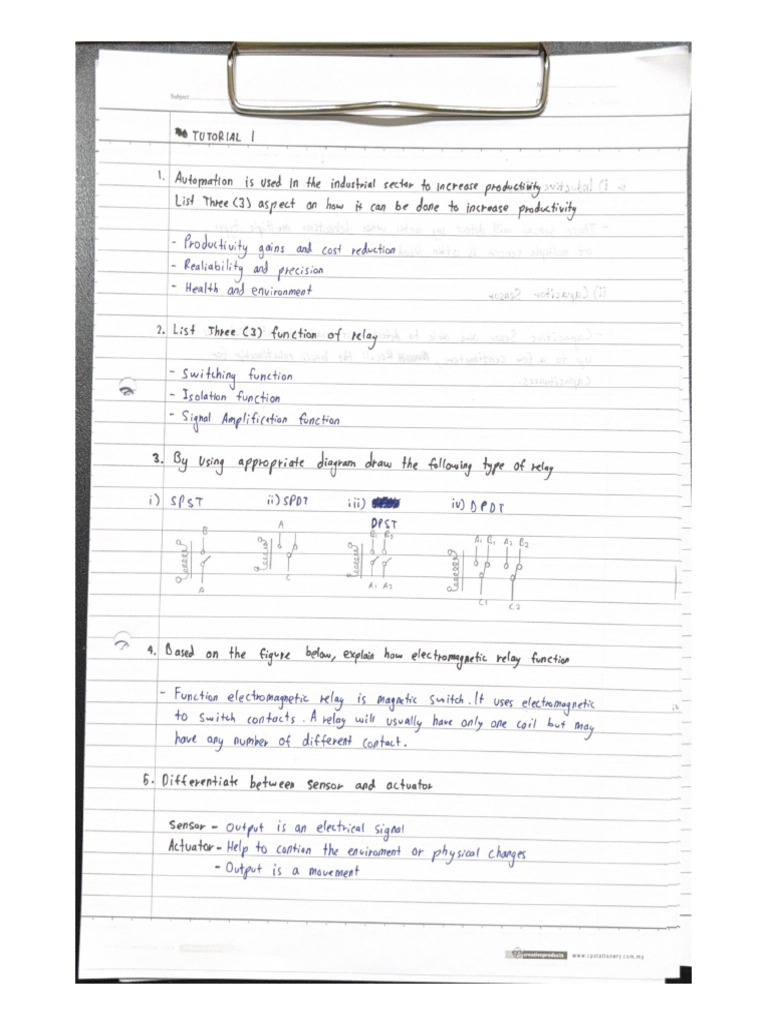 Subject
TUTORIAL 1
1. Automation is used in the industrial sector to increase productivity
List Three (3) aspect on how it can be done to increase productivity
- Productivity gains and cost reduction
- Realiability and precision
- Health and environment
2. List Three (3) function of relay
- Switching function
- Isolation function
- Signal Amplification function
3. By using appropriate diagram draw the following type of relay
i) SPST ii) SPDT iii) DPST iv) DPDT
B A B1 B2 A1 B1 A2 B2
A C A1 A2 C1 C2
4. Based on the figure below, explain how electromagnetic relay function
- Function electromagnetic relay is magnetic switch. It uses electromagnetic
to switch contacts. A relay will usually have only one coil but may
have any number of different contact.
5. Differentiate between sensor and actuator
Sensor - Output is an electrical signal
Actuator - Help to contion the enviroment or physical changes
- Output is a movement
www.cpstationery.com.my